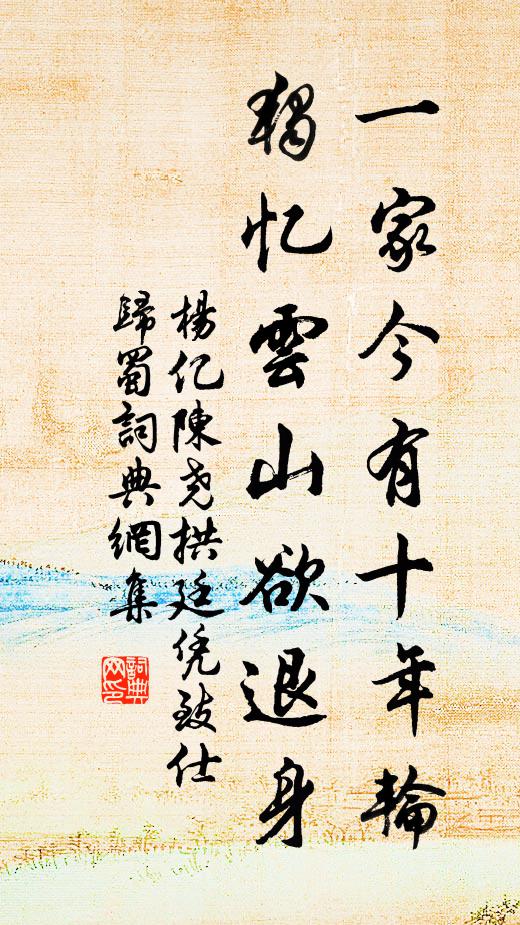 一家今有十年輪
獨忆雲山欲退身
楊亿陳尧拱廷凭致仕
歸蜀詞典網集
詞典网印